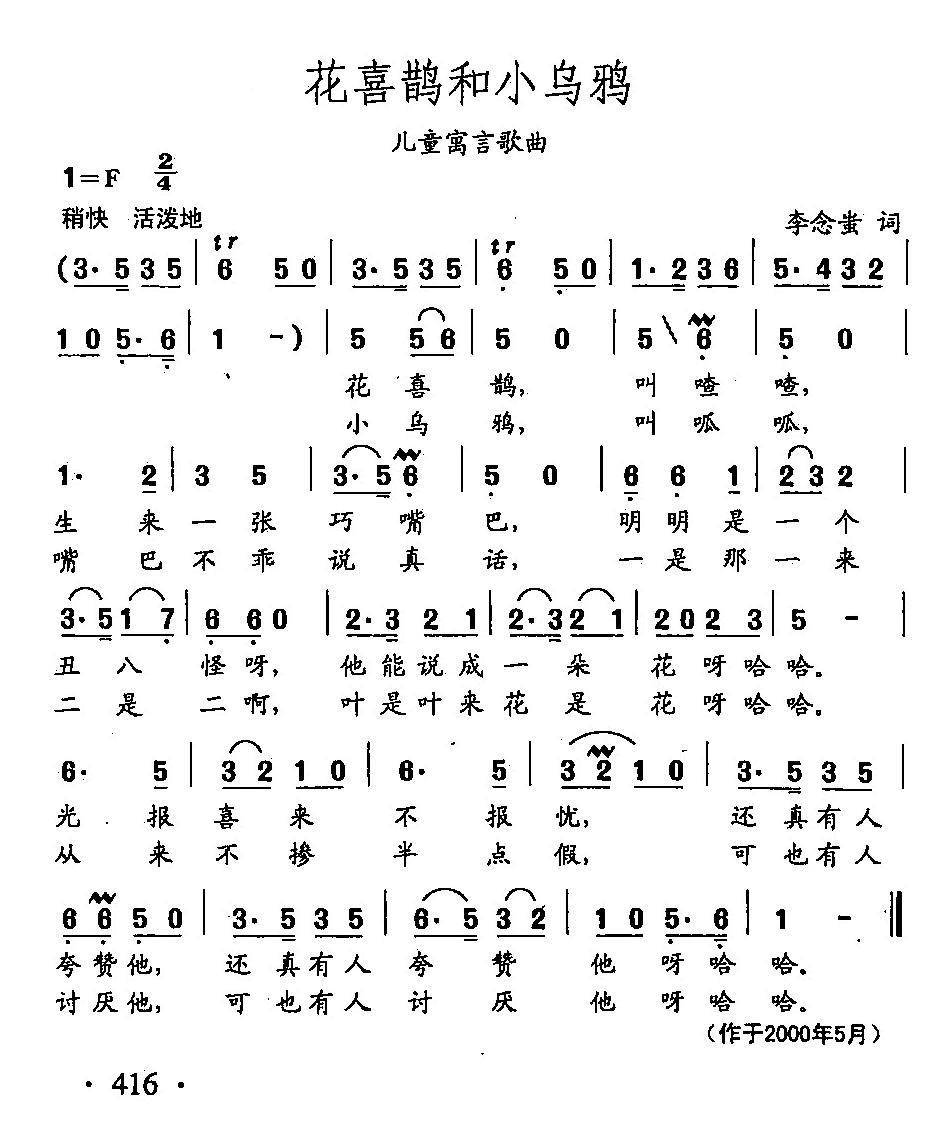 花喜鹊和小乌鸦
儿童寓言歌曲
1=F 2/4
稍快 活泼地
李念蚩 词
(3·5 3 5 | tr 6 5 0 | 3·5 3 5 | tr 6 5 0 | 1·2 3 6 | 5·4 3 2 |
1 0 5·6 | 1 -) | 5 5 6 | 5 0 | 5 \ 6 | 5 0 |
花喜鹊, 叫喳喳,
小乌鸦, 叫呱呱,
1· 2 | 3 5 | 3·5 6 | 5 0 | 6 6 1 | 2 3 2 |
生来一张巧嘴巴, 明明是一个
嘴巴不乖说真话, 一是那一来
3·5 1 7 | 6 6 0 | 2·3 2 1 | 2·3 2 1 | 2 0 2 3 | 5 - |
丑八怪呀, 他能说成一朵花呀哈哈。
二是二啊, 叶是叶来花是花呀哈哈。
6· 5 | 3 2 1 0 | 6· 5 | 3 2 1 0 | 3·5 3 5 |
光报喜来不报忧, 还真有人
从来不掺半点假, 可也有人
6 6 5 0 | 3·5 3 5 | 6·5 3 2 | 1 0 5·6 | 1 - ‖
夸赞他, 还真有人夸赞他呀哈哈。
讨厌他, 可也有人讨厌他呀哈哈。
(作于2000年5月)
· 416 ·